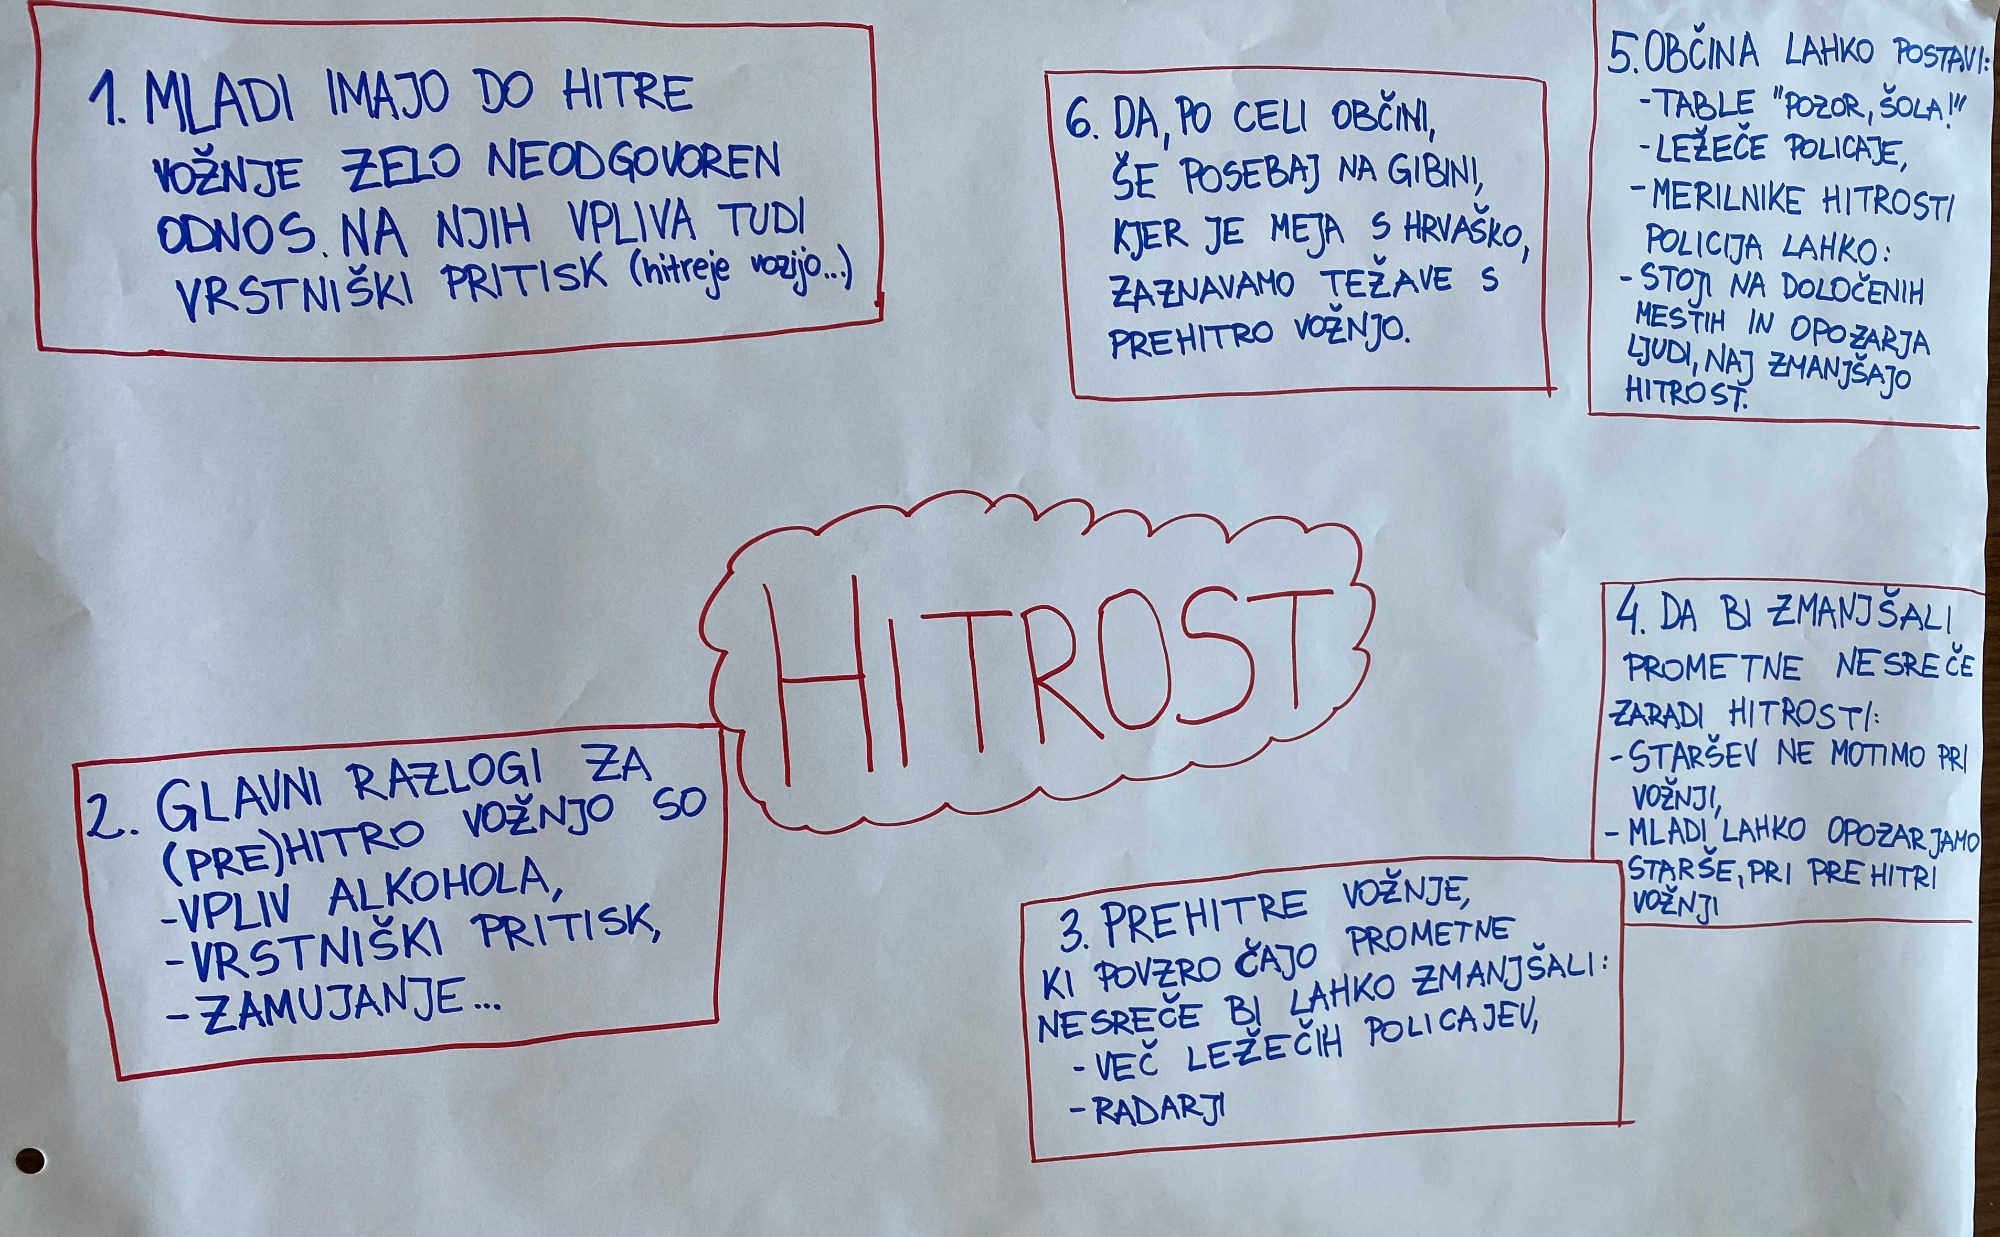 1. MLADI IMAJO DO HITRE
VOŽNJE ZELO NEODGOVOREN
ODNOS. NA NJIH VPLIVA TUDI
VRSTNIŠKI PRITISK (hitreje vozijo...)
6. DA, PO CELI OBČINI,
ŠE POSEBAJ NA GIBINI,
KJER JE MEJA S HRVAŠKO,
ZAZNAVAMO TEŽAVE S
PREHITRO VOŽNJO.
5. OBČINA LAHKO POSTAVI:
- TABLE "POZOR, ŠOLA!"
- LEŽEČE POLICAJE,
- MERILNIKE HITROSTI
POLICIJA LAHKO:
- STOJI NA DOLOČENIH
MESTIH IN OPOZARJA
LJUDI, NAJ ZMANJŠAJO
HITROST.
HITROST
2. GLAVNI RAZLOGI ZA
(PRE)HITRO VOŽNJO SO
- VPLIV ALKOHOLA,
- VRSTNIŠKI PRITISK,
- ZAMUJANJE...
3. PREHITRE VOŽNJE,
KI POVZROČAJO PROMETNE
NESREČE BI LAHKO ZMANJŠALI:
- VEČ LEŽEČIH POLICAJEV,
- RADARJI
4. DA BI ZMANJŠALI
PROMETNE NESREČE
ZARADI HITROSTI:
- STARŠEV NE MOTIMO PRI
VOŽNJI,
- MLADI LAHKO OPOZARJAMO
STARŠE, PRI PREHITRI
VOŽNJI